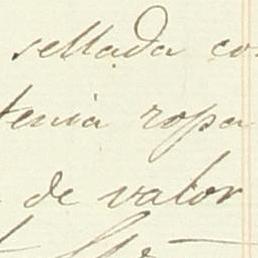 sellada co
tenia ropa
de valor